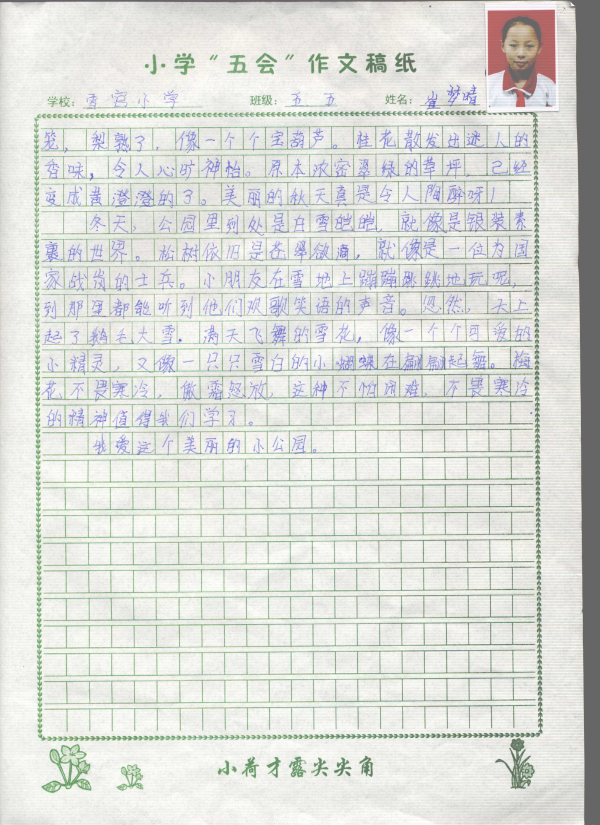 小学“五会”作文稿纸
学校：香宫小学 班级：五五 姓名：崔梦晴
笼，梨熟了，像一个个宝葫芦。桂花散发出迷人的
香味，令人心旷神怡。原本浓密翠绿的草坪，已经
变成黄澄澄的了。美丽的秋天真是令人陶醉呀！
冬天，公园里到处是白雪皑皑，就像是银装素
裹的世界。松树依旧是苍翠欲滴，就像是一位为国
家战岗的士兵。小朋友在雪地上蹦蹦跳跳地玩呢，
到那里都能听到他们欢歌笑语的声音。忽然，天上
起了鹅毛大雪。满天飞舞的雪花，像一个个可爱的
小精灵，又像一只只雪白的小蝴蝶在翩翩起舞。梅
花不畏寒冷，傲霜怒放，这种不怕困难，不畏寒冷
的精神值得我们学习。
我爱这个美丽的小公园。
小荷才露尖尖角